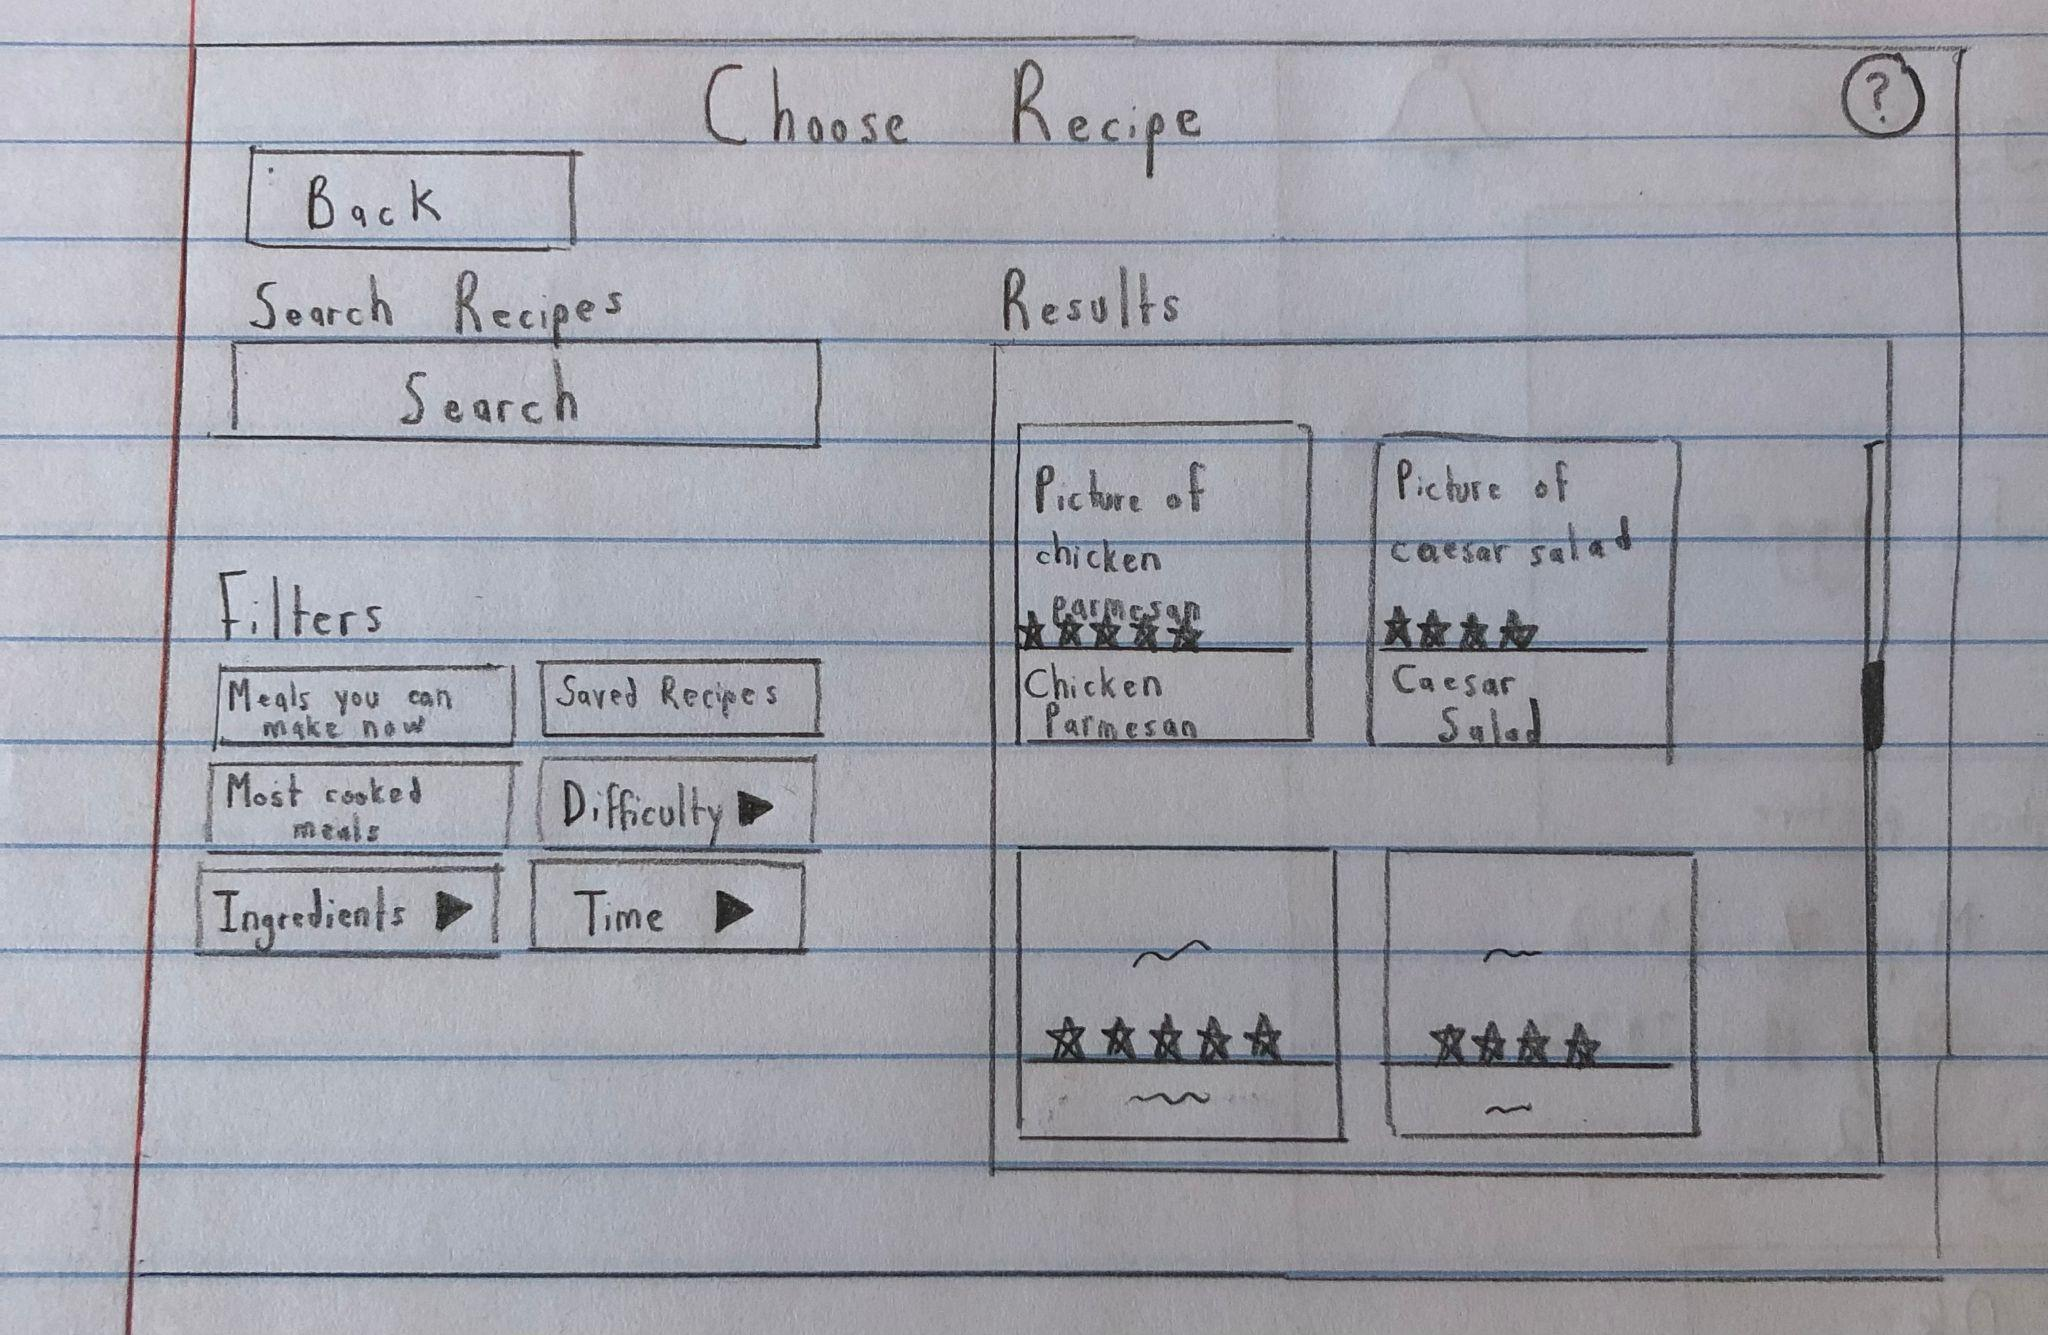 Choose Recipe
?
Back
Search Recipes
Search
Filters
Meals you can
make now
Saved Recipes
Most cooked
meals
Difficulty
Ingredients
Time
Results
Picture of
chicken
parmesan
Chicken
Parmesan
Picture of
caesar salad
Caesar
Salad